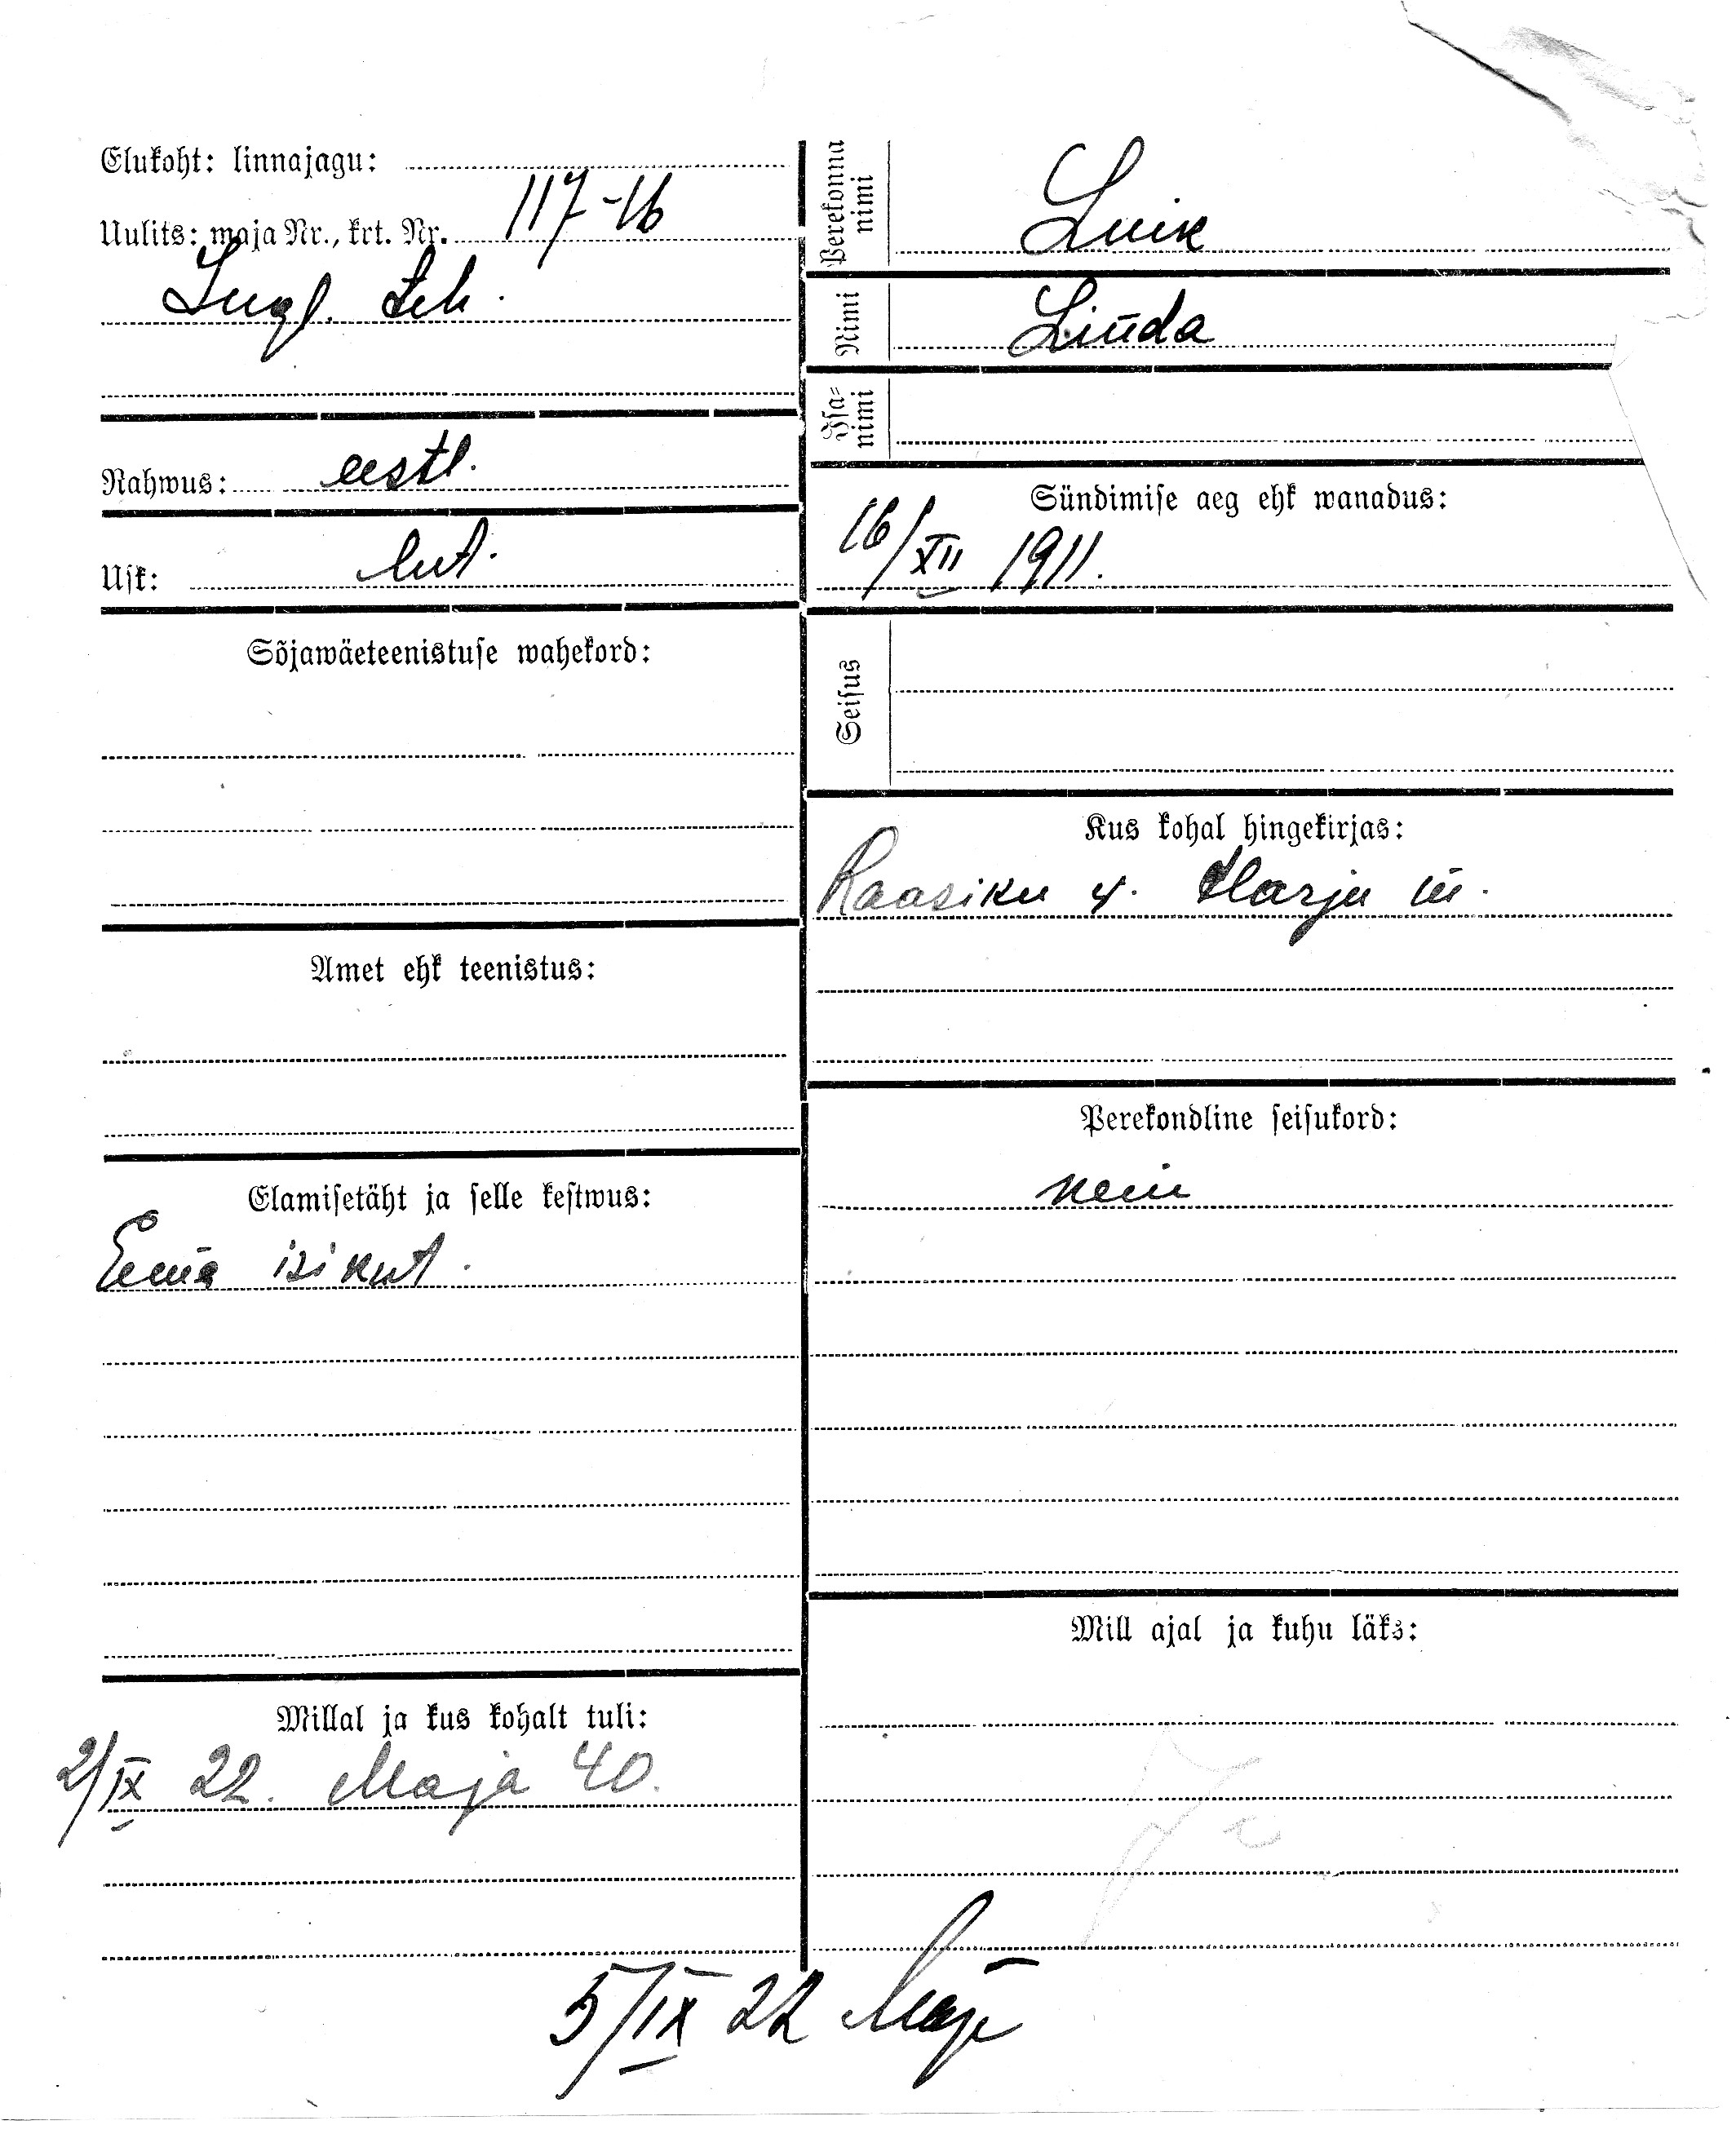 Elukoht: linnajagu:
Uulits: maja Nr., krt. Nr. 117-16
eestl.
Rahwus:
lut.
Usk:
Sõjawäeteenistuse wahekord:
Amet ehk teenistus:
Elamisetäht ja selle kestwus:
Ema isikut.
Millal ja kus kohalt tuli:
2/IX 22. Maja 40.
Perekonna nimi
Luik
Nimi
Linda
Isa-nimi
Sündimise aeg ehk wanadus:
16/XII 1911.
Seisus
Kus kohal hingekirjas:
Raasiku v. Harju m.
Perekondline seisukord:
neiu
Mill ajal ja kuhu läks:
5/IX 22